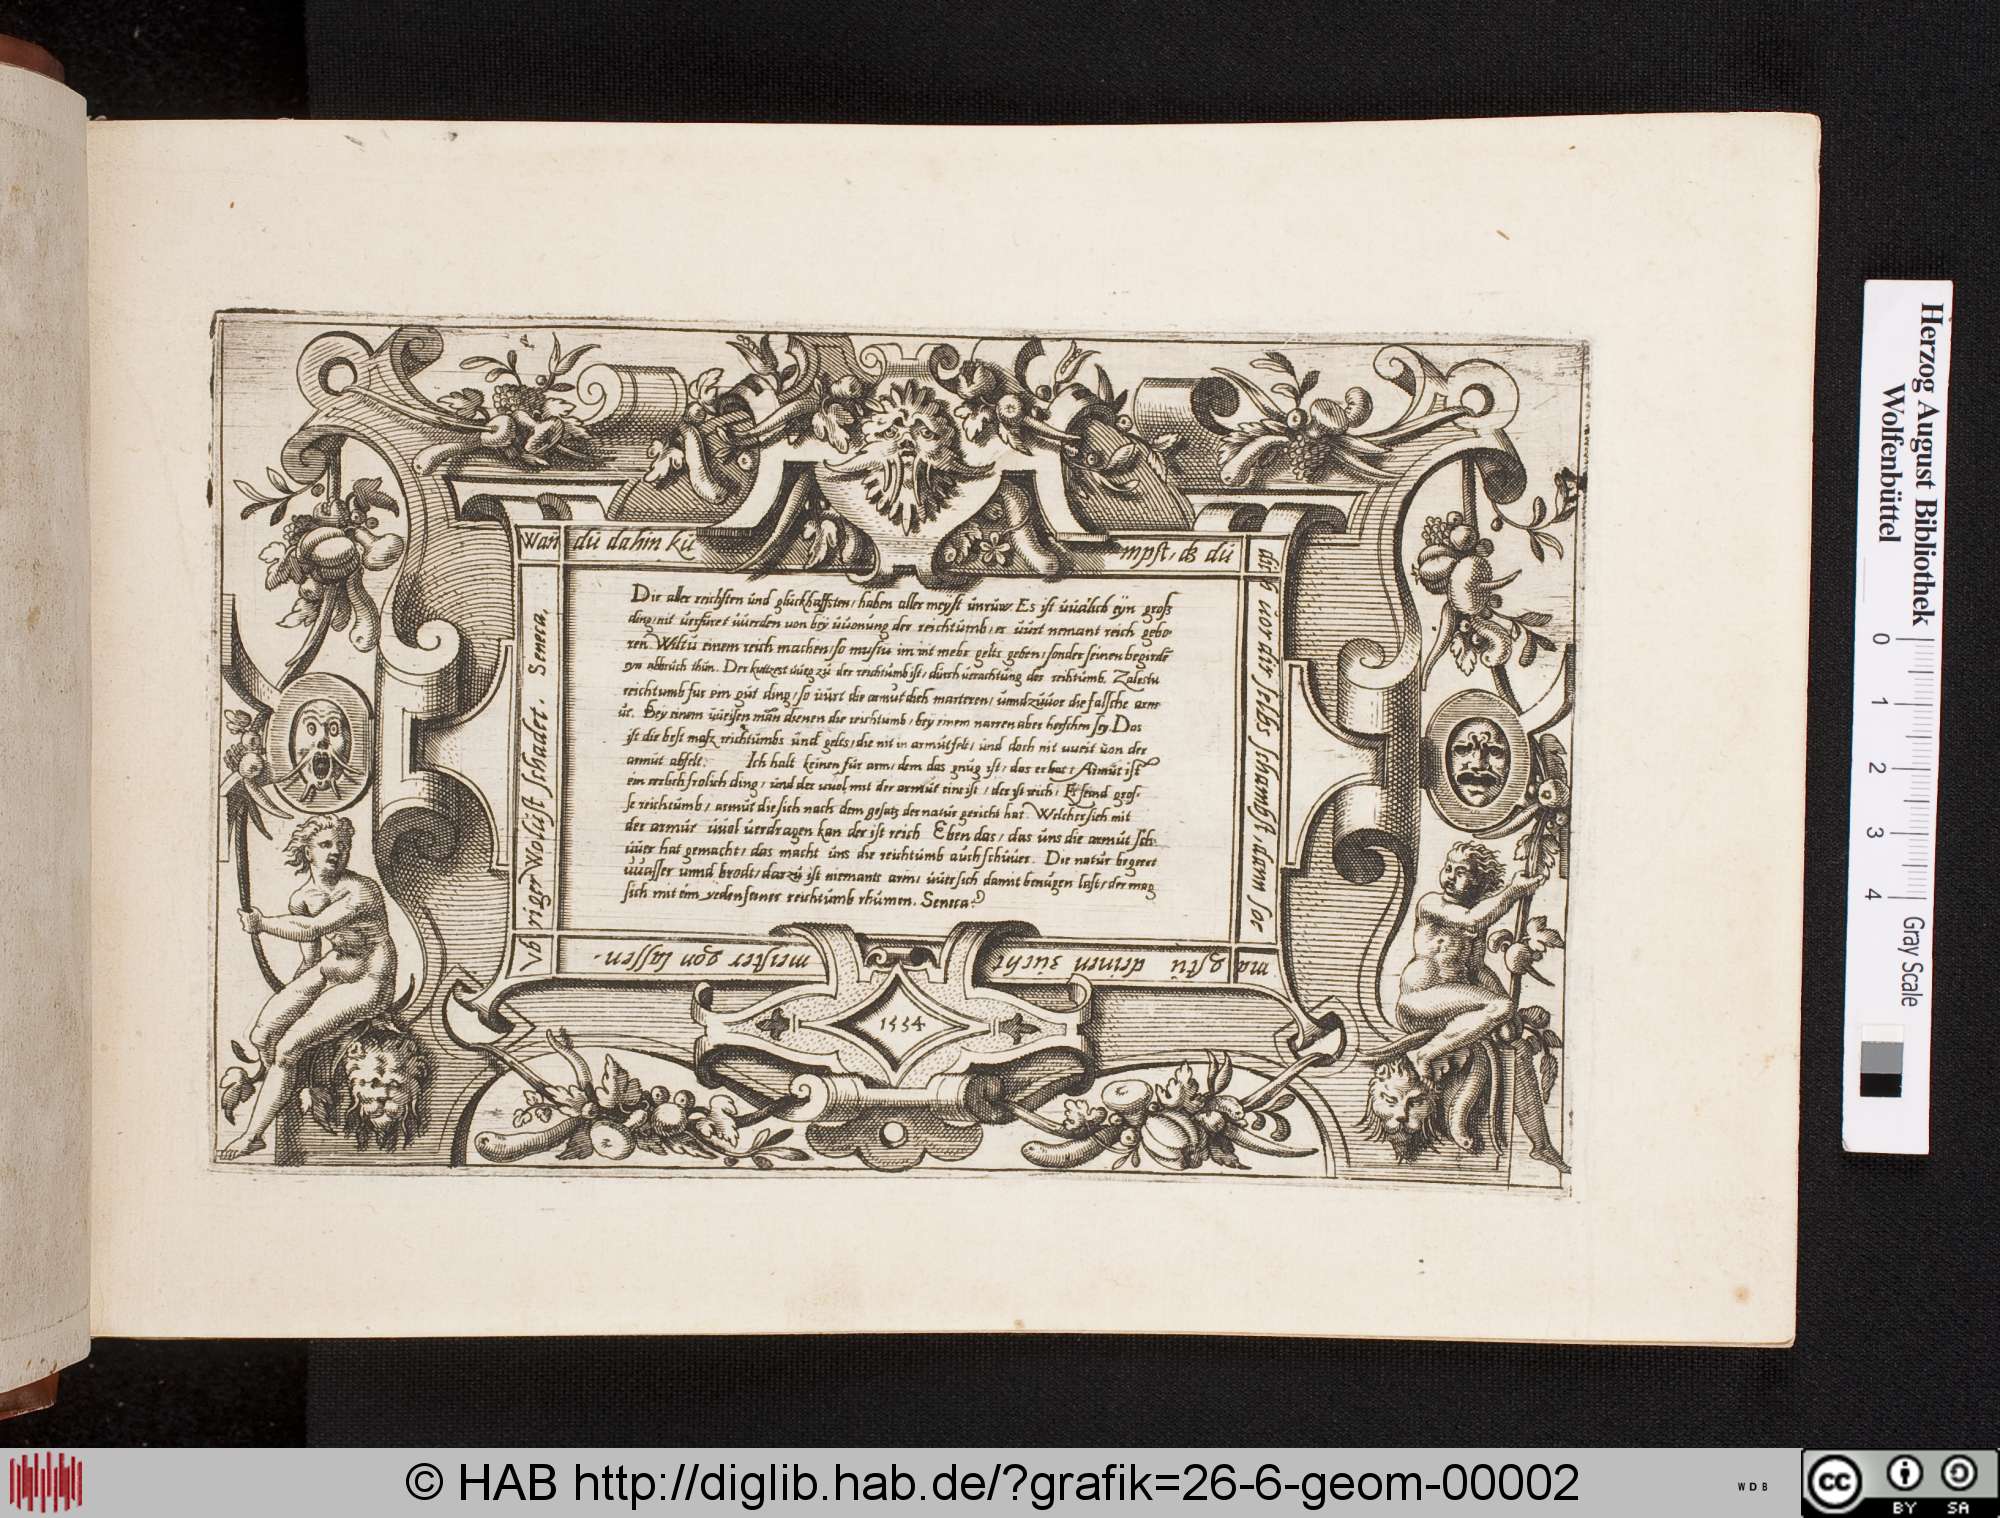 Wan dū dahin kū
mpst, ds dū
dich vor dir selbs schambst, dann soe
ma gstū deinen zūcht
meister gon lassen.
Vb riger Wolūst schadet. Seneca.
Die aller reichsten ūnd glückhafften, haben aller meyst ūnrūw. Es ist ūūǎlich eyn groß
ding, nit verfūret ūūerden von bey ūūonūng der reichtūmb, es ūūrt nemant reich gebo
ren. Wiltū einem reich machen, so mustu im nit mehr gelts geben, sonder seinen begirdē
eyn abbrūch thūn. Der kūrtzest ūūeg zū der reichtūmb ist, dūrch verachtūng der reihtūmb. Zalestu
reichtumb fur em gūt ding, so ūūrt die armūt dich marteren, unnd zūūor die falsche arm
ūt. Bey einem ūūeisen man dienen die reichtumb, bey einem narren aber herschen sey. Das
ist die best maß reichtūmbs ūnd gelts, die nit in armūt felt, ūnd doch nit ūūeit ūon der
armūt abfelt. Ich halt keinen fūr arm, dem das gnūg ist, das er hat: Armūt ist
ein eerlich frolich ding, ūnd der ūūol mit der armūt eins ist, der ist reich, Es seind gros-
se reichtūmb, armūt die sich nach dem gesatz der natūr gericht hat. Welcher sich mit
der armūt ūūol ūerdragen kan der ist reich Eben das, das ūns die armūt sch
ūūer hat gemacht, das macht ūns die reichtūmb aūch schūūer. Die natūr begeret
ūūasser unnd brodt, darzū ist niemants arm, ūūer sich damit benūgen last, der mag
sich mit eim yeden seiner reichtūmb rhūmen. Seneca.
1554
Herzog August Bibliothek
Wolfenbüttel
0 1 2 3 4
Gray Scale
© HAB http://diglib.hab.de/?grafik=26-6-geom-00002
WDB
cc BY SA